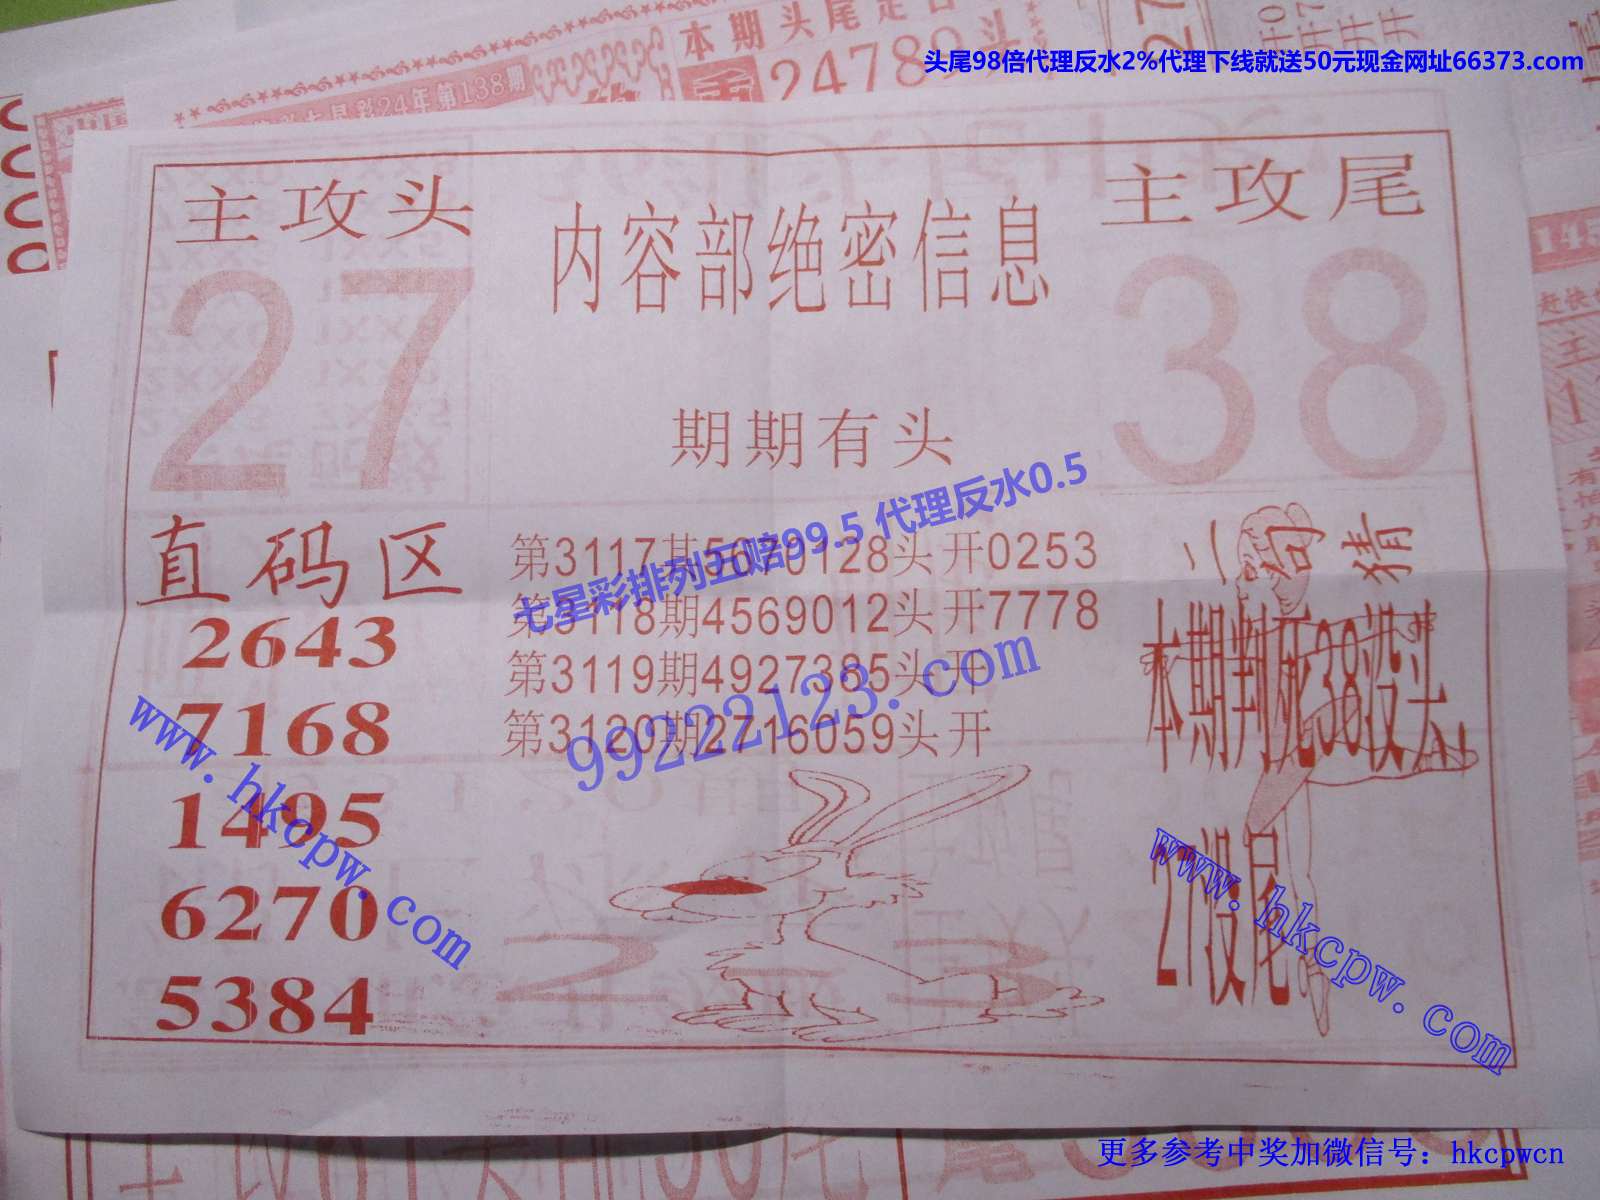 头尾98倍代理反水2%代理下线就送50元现金网址66373.com
本期头尾定
24789头
七星彩24年第138期
主攻头
27
内容部绝密信息
主攻尾
38
期期有头
直码区
2643
7168
1495
6270
5384
第3117期5670128头开0253
第3118期4569012头开7778
第3119期4927385头开
第3120期2716059头开
七星彩排列五赔99.5 代理反水0.5
99222123.com
二句猜
本期判死38没头
27没尾
www.hkcpw.com
www.hkcpw.com
更多参考中奖加微信号：hkcpwcn